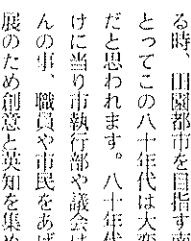 る時、田園都市を目指す
とってこの八十年代は大
だと思われます。八十年代
けに当り市執行部や議会
んの事、職員や市民をあげ
展のため創意と英知を集め